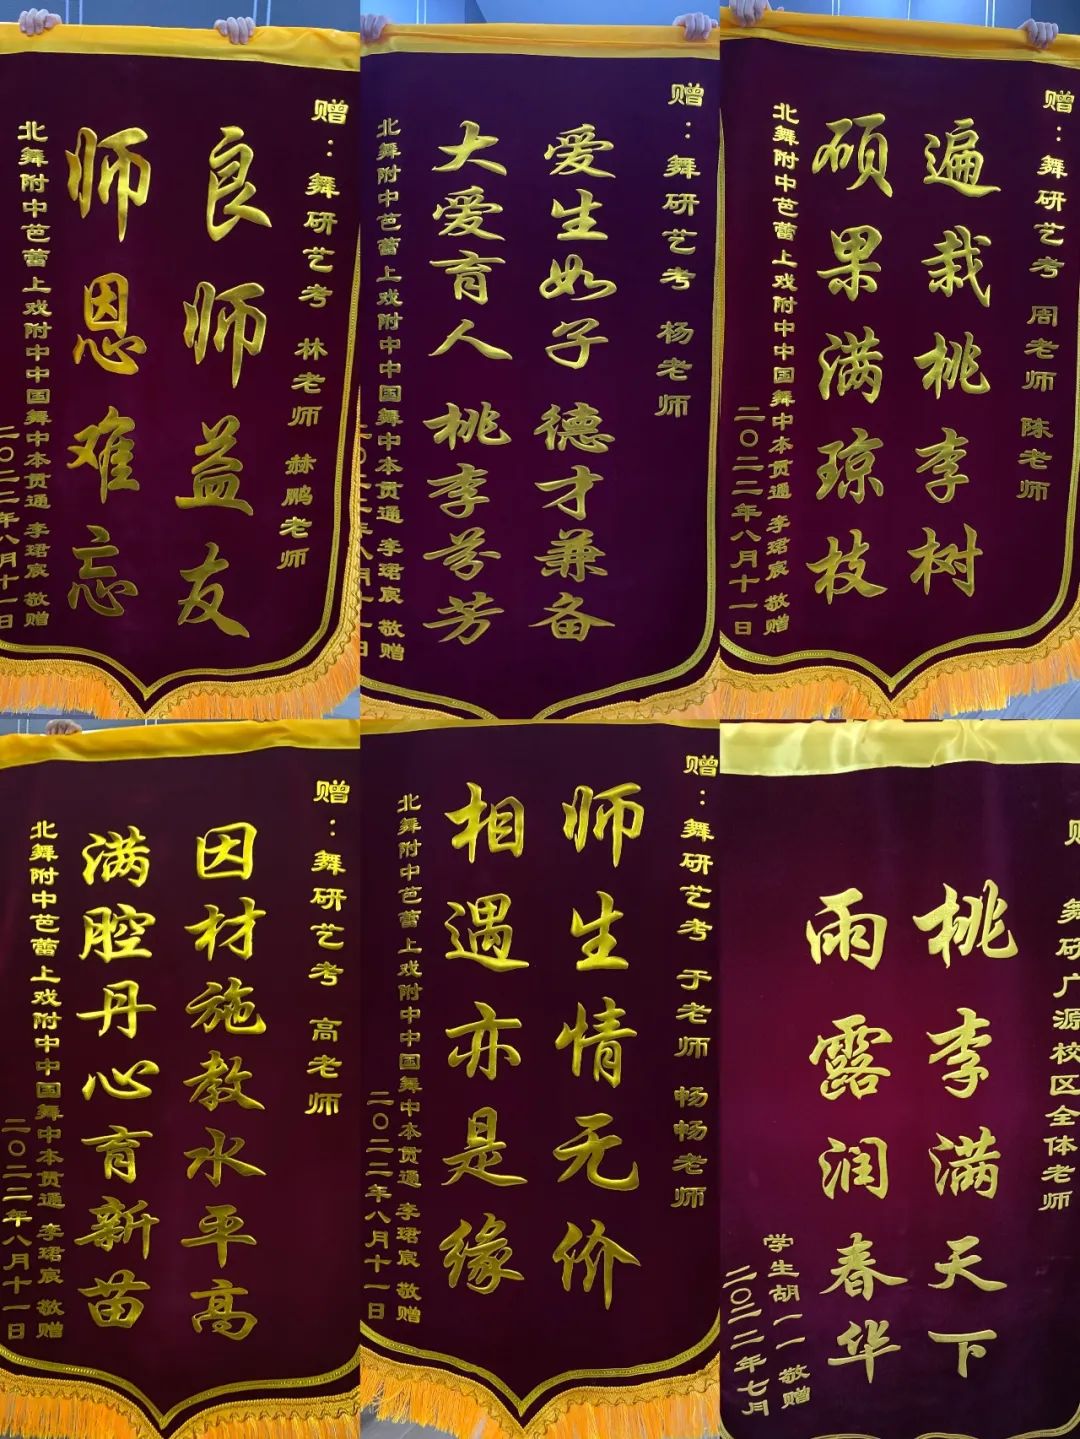 赠：舞研艺考 林老师 赫鹏老师
良师益友
师恩难忘
北舞附中芭蕾上戏附中中国舞中本贯通 李珺宸 敬赠
二〇二二年八月十一日
赠：舞研艺考 杨老师
爱生如子 德才兼备
大爱育人 桃李芬芳
北舞附中芭蕾上戏附中中国舞中本贯通 李珺宸 敬赠
二〇二二年八月十一日
赠：舞研艺考 周老师 陈老师
遍栽桃李树
硕果满琼枝
北舞附中芭蕾上戏附中中国舞中本贯通 李珺宸 敬赠
二〇二二年八月十一日
赠：舞研艺考 高老师
因材施教水平高
满腔丹心育新苗
北舞附中芭蕾上戏附中中国舞中本贯通 李珺宸 敬赠
二〇二二年八月十一日
赠：舞研艺考 于老师 畅畅老师
师生情无价
相遇亦是缘
北舞附中芭蕾上戏附中中国舞中本贯通 李珺宸 敬赠
二〇二二年八月十一日
舞研广源校区全体老师
桃李满天下
雨露润春华
学生胡一一 敬赠
二〇二二年七月